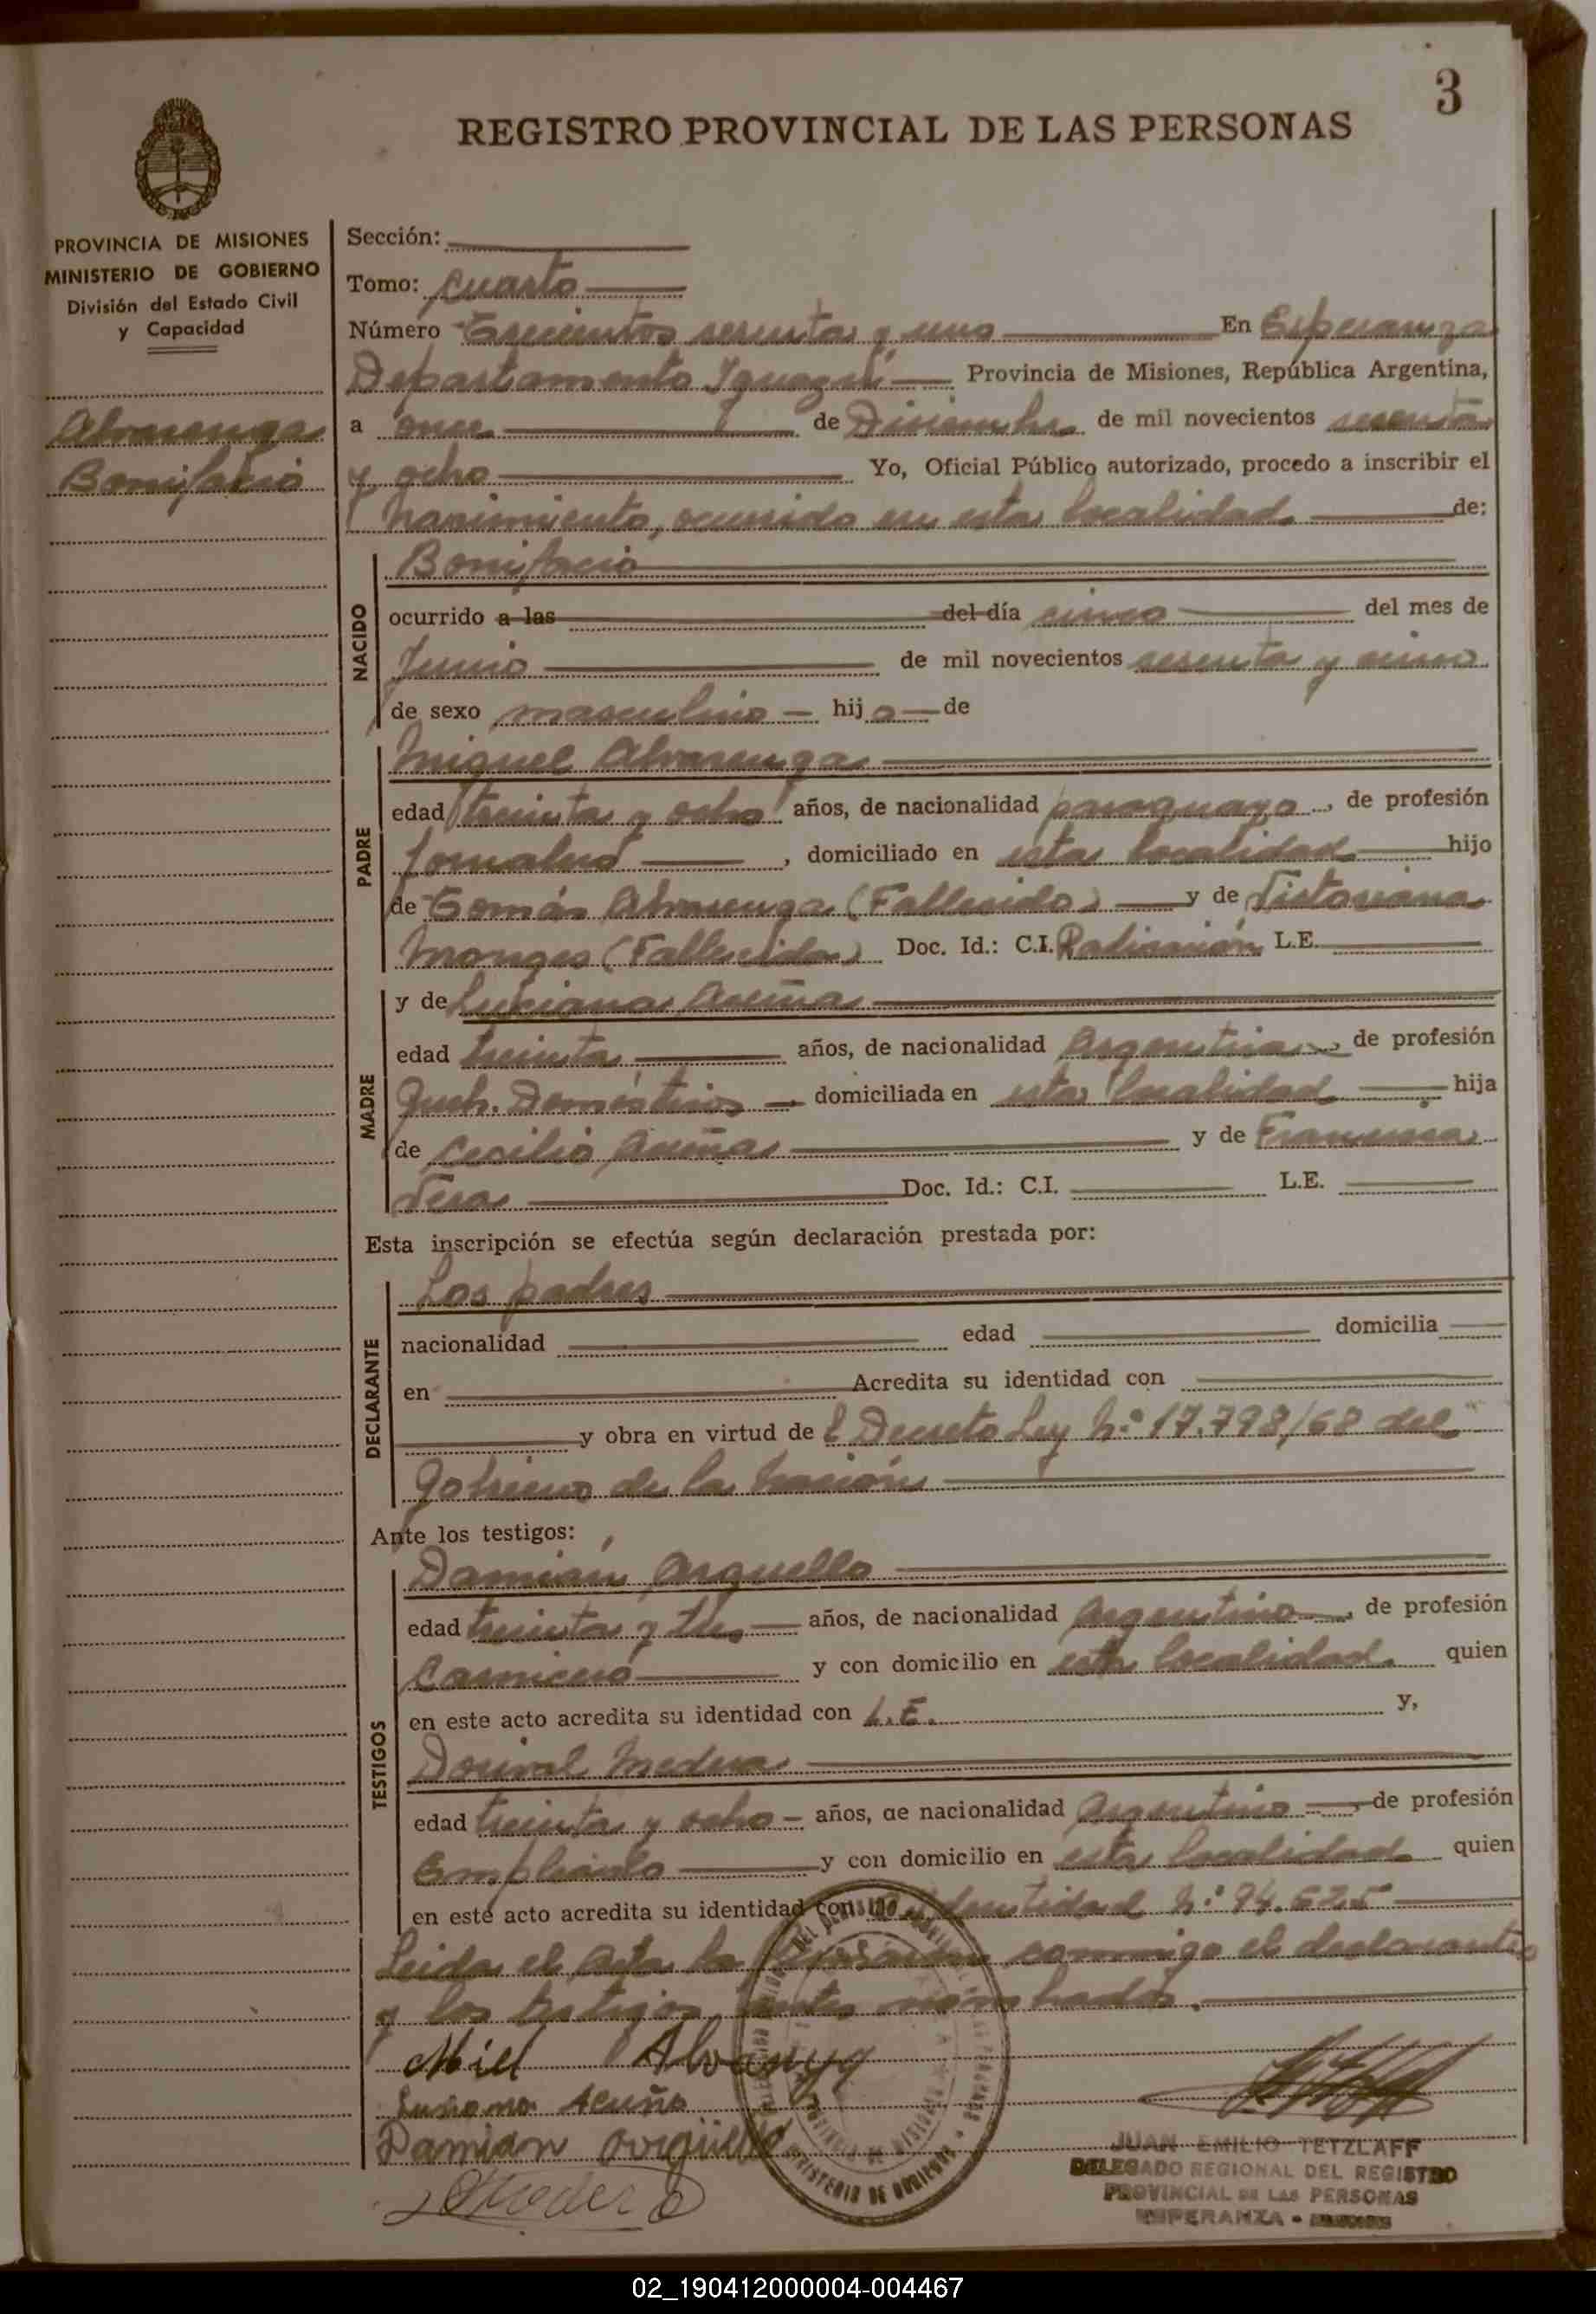 3
REGISTRO PROVINCIAL DE LAS PERSONAS
PROVINCIA DE MISIONES
MINISTERIO DE GOBIERNO
División del Estado Civil
y Capacidad
Alvarenga
Bonifacio
Sección:
Tomo: Cuarto
Número Trescientos sesenta y uno En Esperanza
Departamento Iguazú Provincia de Misiones, República Argentina,
a once de Diciembre de mil novecientos sesenta
y ocho Yo, Oficial Público autorizado, procedo a inscribir el
nacimiento, ocurrido en esta localidad de:
NACIDO
Bonifacio
ocurrido a las del día cinco del mes de
Junio de mil novecientos sesenta y cinco
de sexo masculino hijo de
PADRE
Miguel Alvarenga
edad treinta y ocho años, de nacionalidad paraguaya, de profesión
Jornalero, domiciliado en esta localidad hijo
de Tomás Alvarenga (Fallecido) y de Victoriana
Monges (Fallecida) Doc. Id.: C.I. Radicación L.E.
MADRE
y de Luciana Acuña
edad treinta años, de nacionalidad Argentina, de profesión
Queh. Domésticos domiciliada en esta localidad hija
de Cecilio Acuña y de Francisca
Vera Doc. Id.: C.I. L.E.
Esta inscripción se efectúa según declaración prestada por:
DECLARANTE
Los padres
nacionalidad edad domicilia
en Acredita su identidad con
y obra en virtud de l Decreto Ley N:º 17.798/68 del
Gobierno de la Nación
Ante los testigos:
TESTIGOS
Damián Arguello
edad treinta y tres años, de nacionalidad Argentino, de profesión
Carnicero y con domicilio en esta localidad quien
en este acto acredita su identidad con L.E. y,
Dorival Medera
edad treinta y ocho años, de nacionalidad Argentino, de profesión
Empleado y con domicilio en esta localidad quien
en este acto acredita su identidad con Identidad N:º 94.625
Leida el Acta la firman conmigo el declarante
y los testigos antes nombrados.
Miel Alvanyg
Lusiana Acuña
Damian Orgüello
JUAN EMILIO TETZLAFF
DELEGADO REGIONAL DEL REGISTRO
PROVINCIAL DE LAS PERSONAS
ESPERANZA - MISIONES
02_190412000004-004467